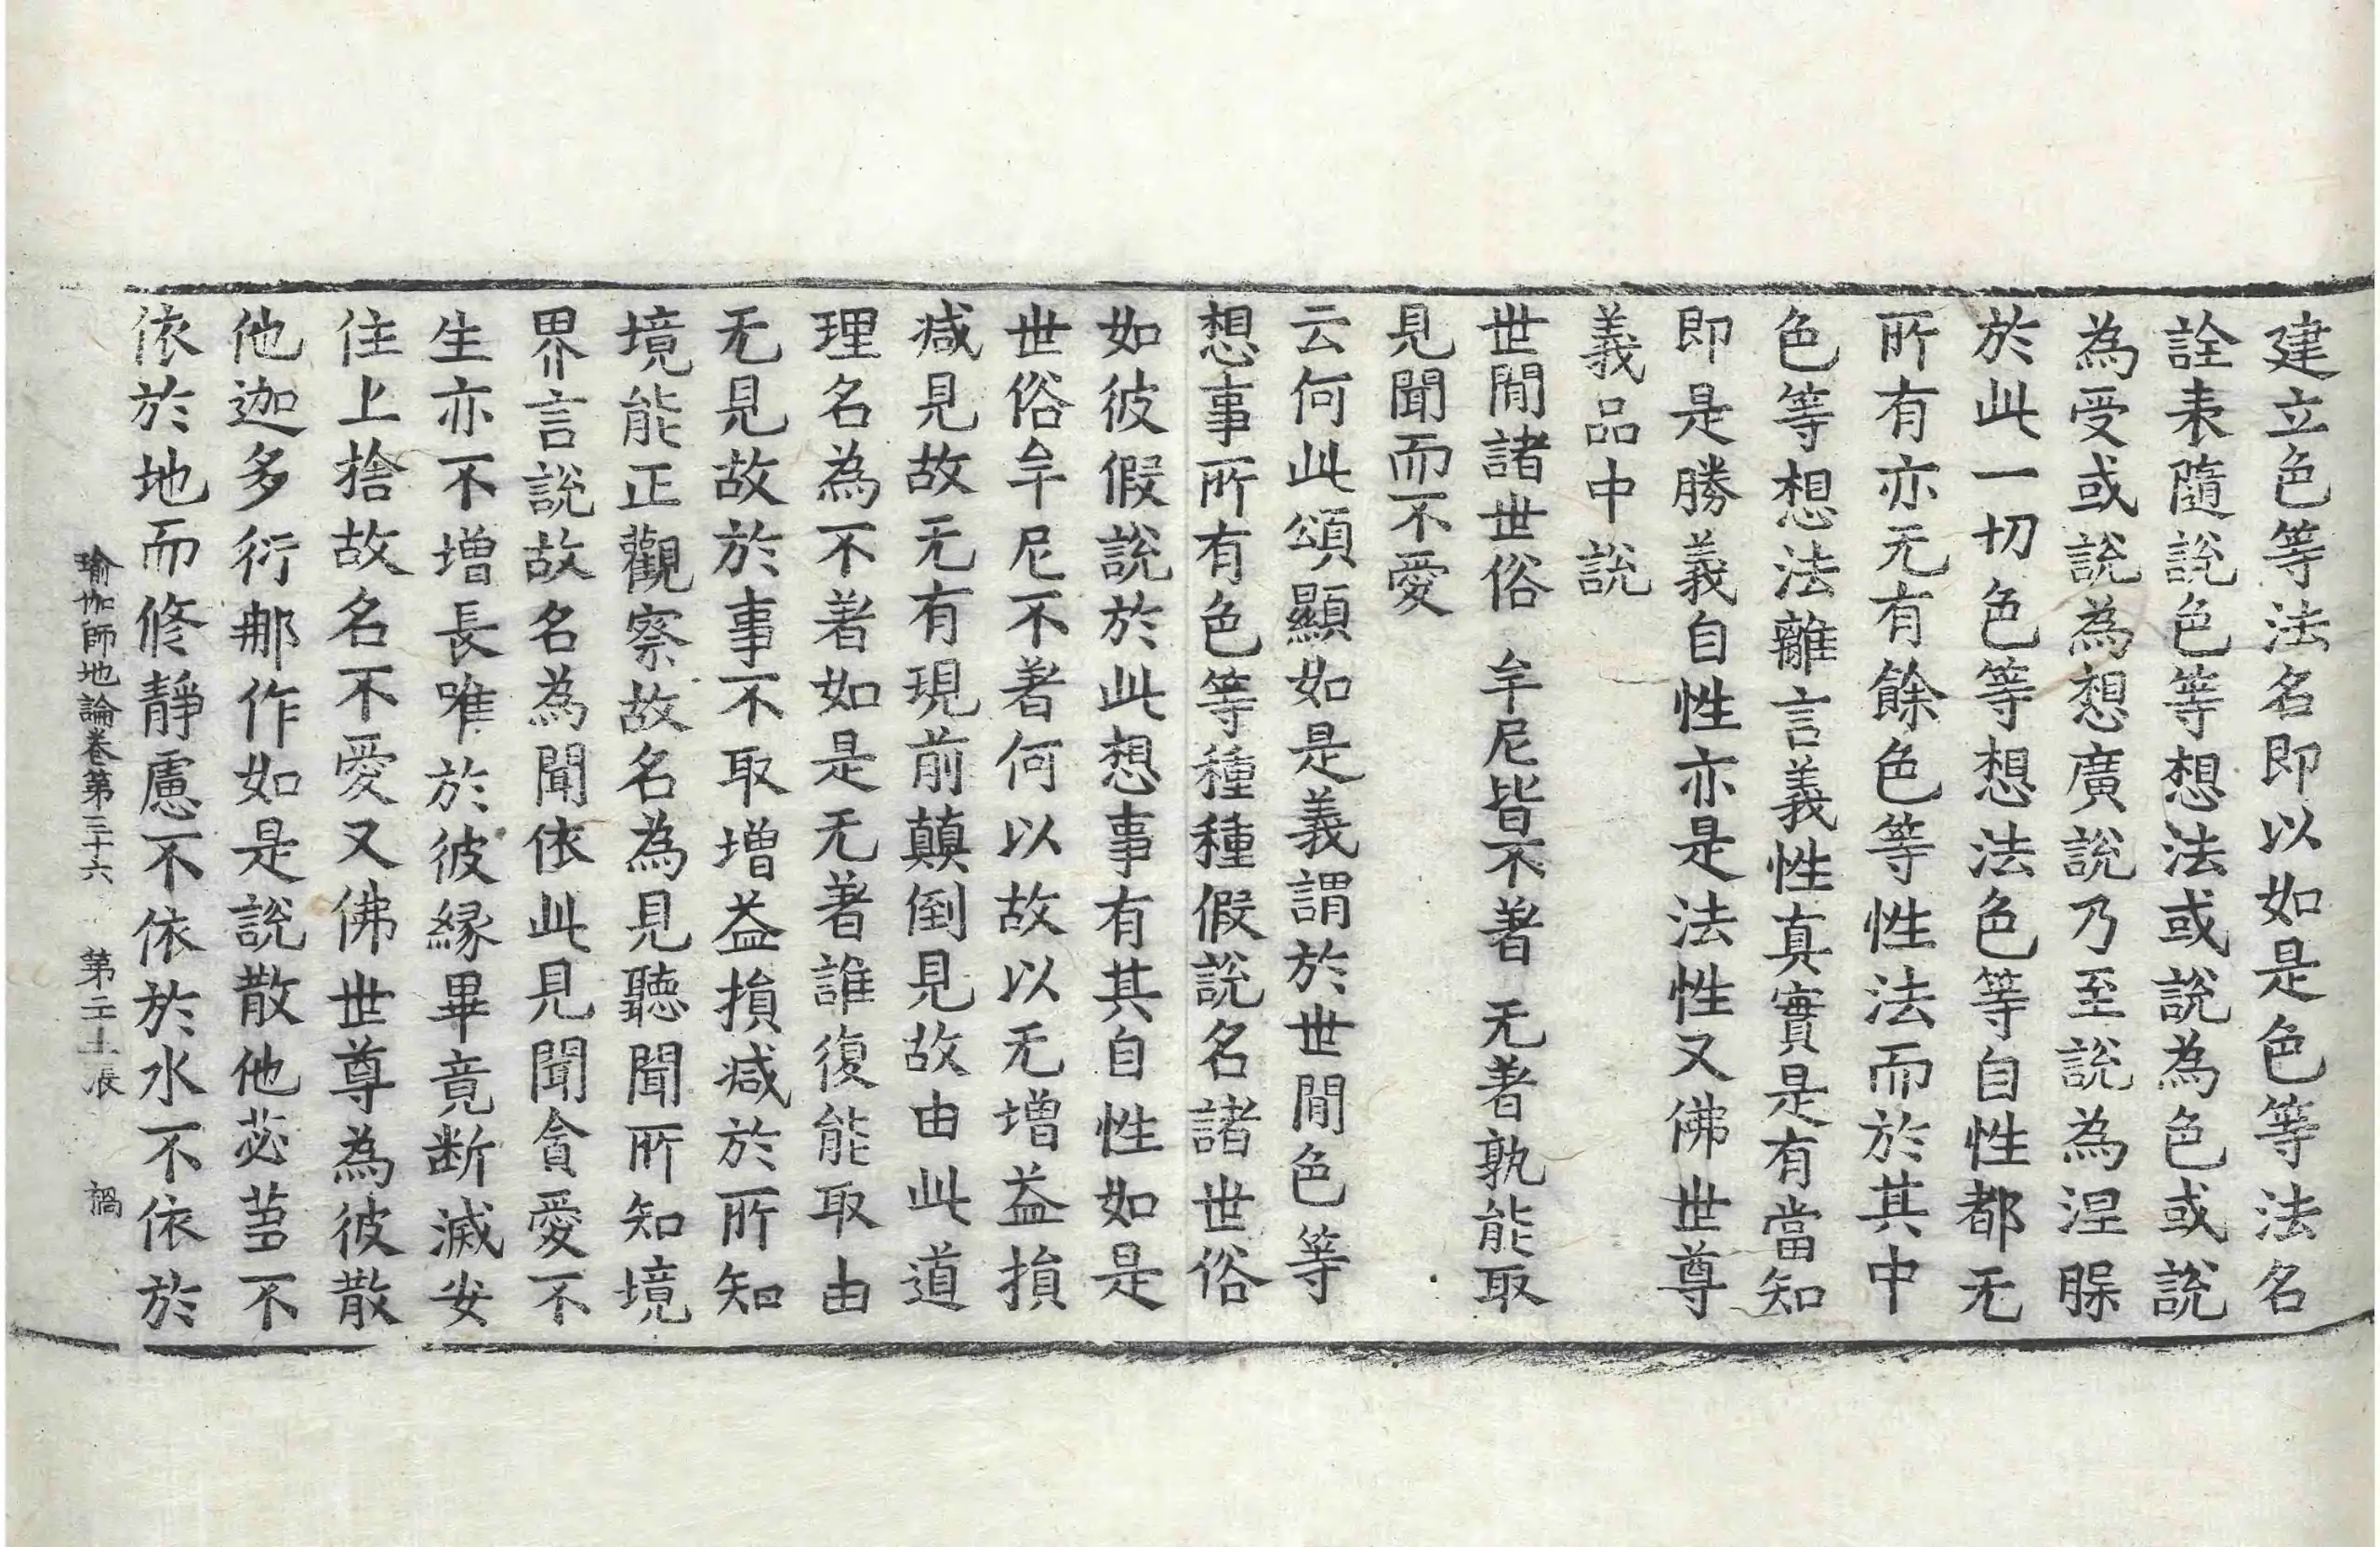 建立色等法名即以如是色等法名
詮表隨說色等想法或說為色或說
為受或說為想廣說乃至說為涅槃
於此一切色等想法色等自性都无
所有亦无有餘色等性法而於其中
色等想法離言義性真實是有當知
即是勝義自性亦是法性又佛世尊
義品中說
世間諸世俗　牟尼皆不著　无著孰能取
見聞而不愛
云何此頌顯如是義謂於世間色等
想事所有色等種種假說名諸世俗
如彼假說於此想事有其自性如是
世俗牟尼不著何以故以无增益損
減見故无有現前顛倒見故由此道
理名為不著如是无著誰復能取由
无見故於事不取增益損減於所知
境能正觀察故名為見聽聞所知境
界言說故名為聞依此見聞貪愛不
生亦不增長唯於彼緣畢竟斷滅安
住上捨故名不愛又佛世尊為彼散
他迦多衍那作如是說散他苾蒭不
依於地而修靜慮不依於水不依於
瑜伽師地論卷第三十六　第二十張　禍